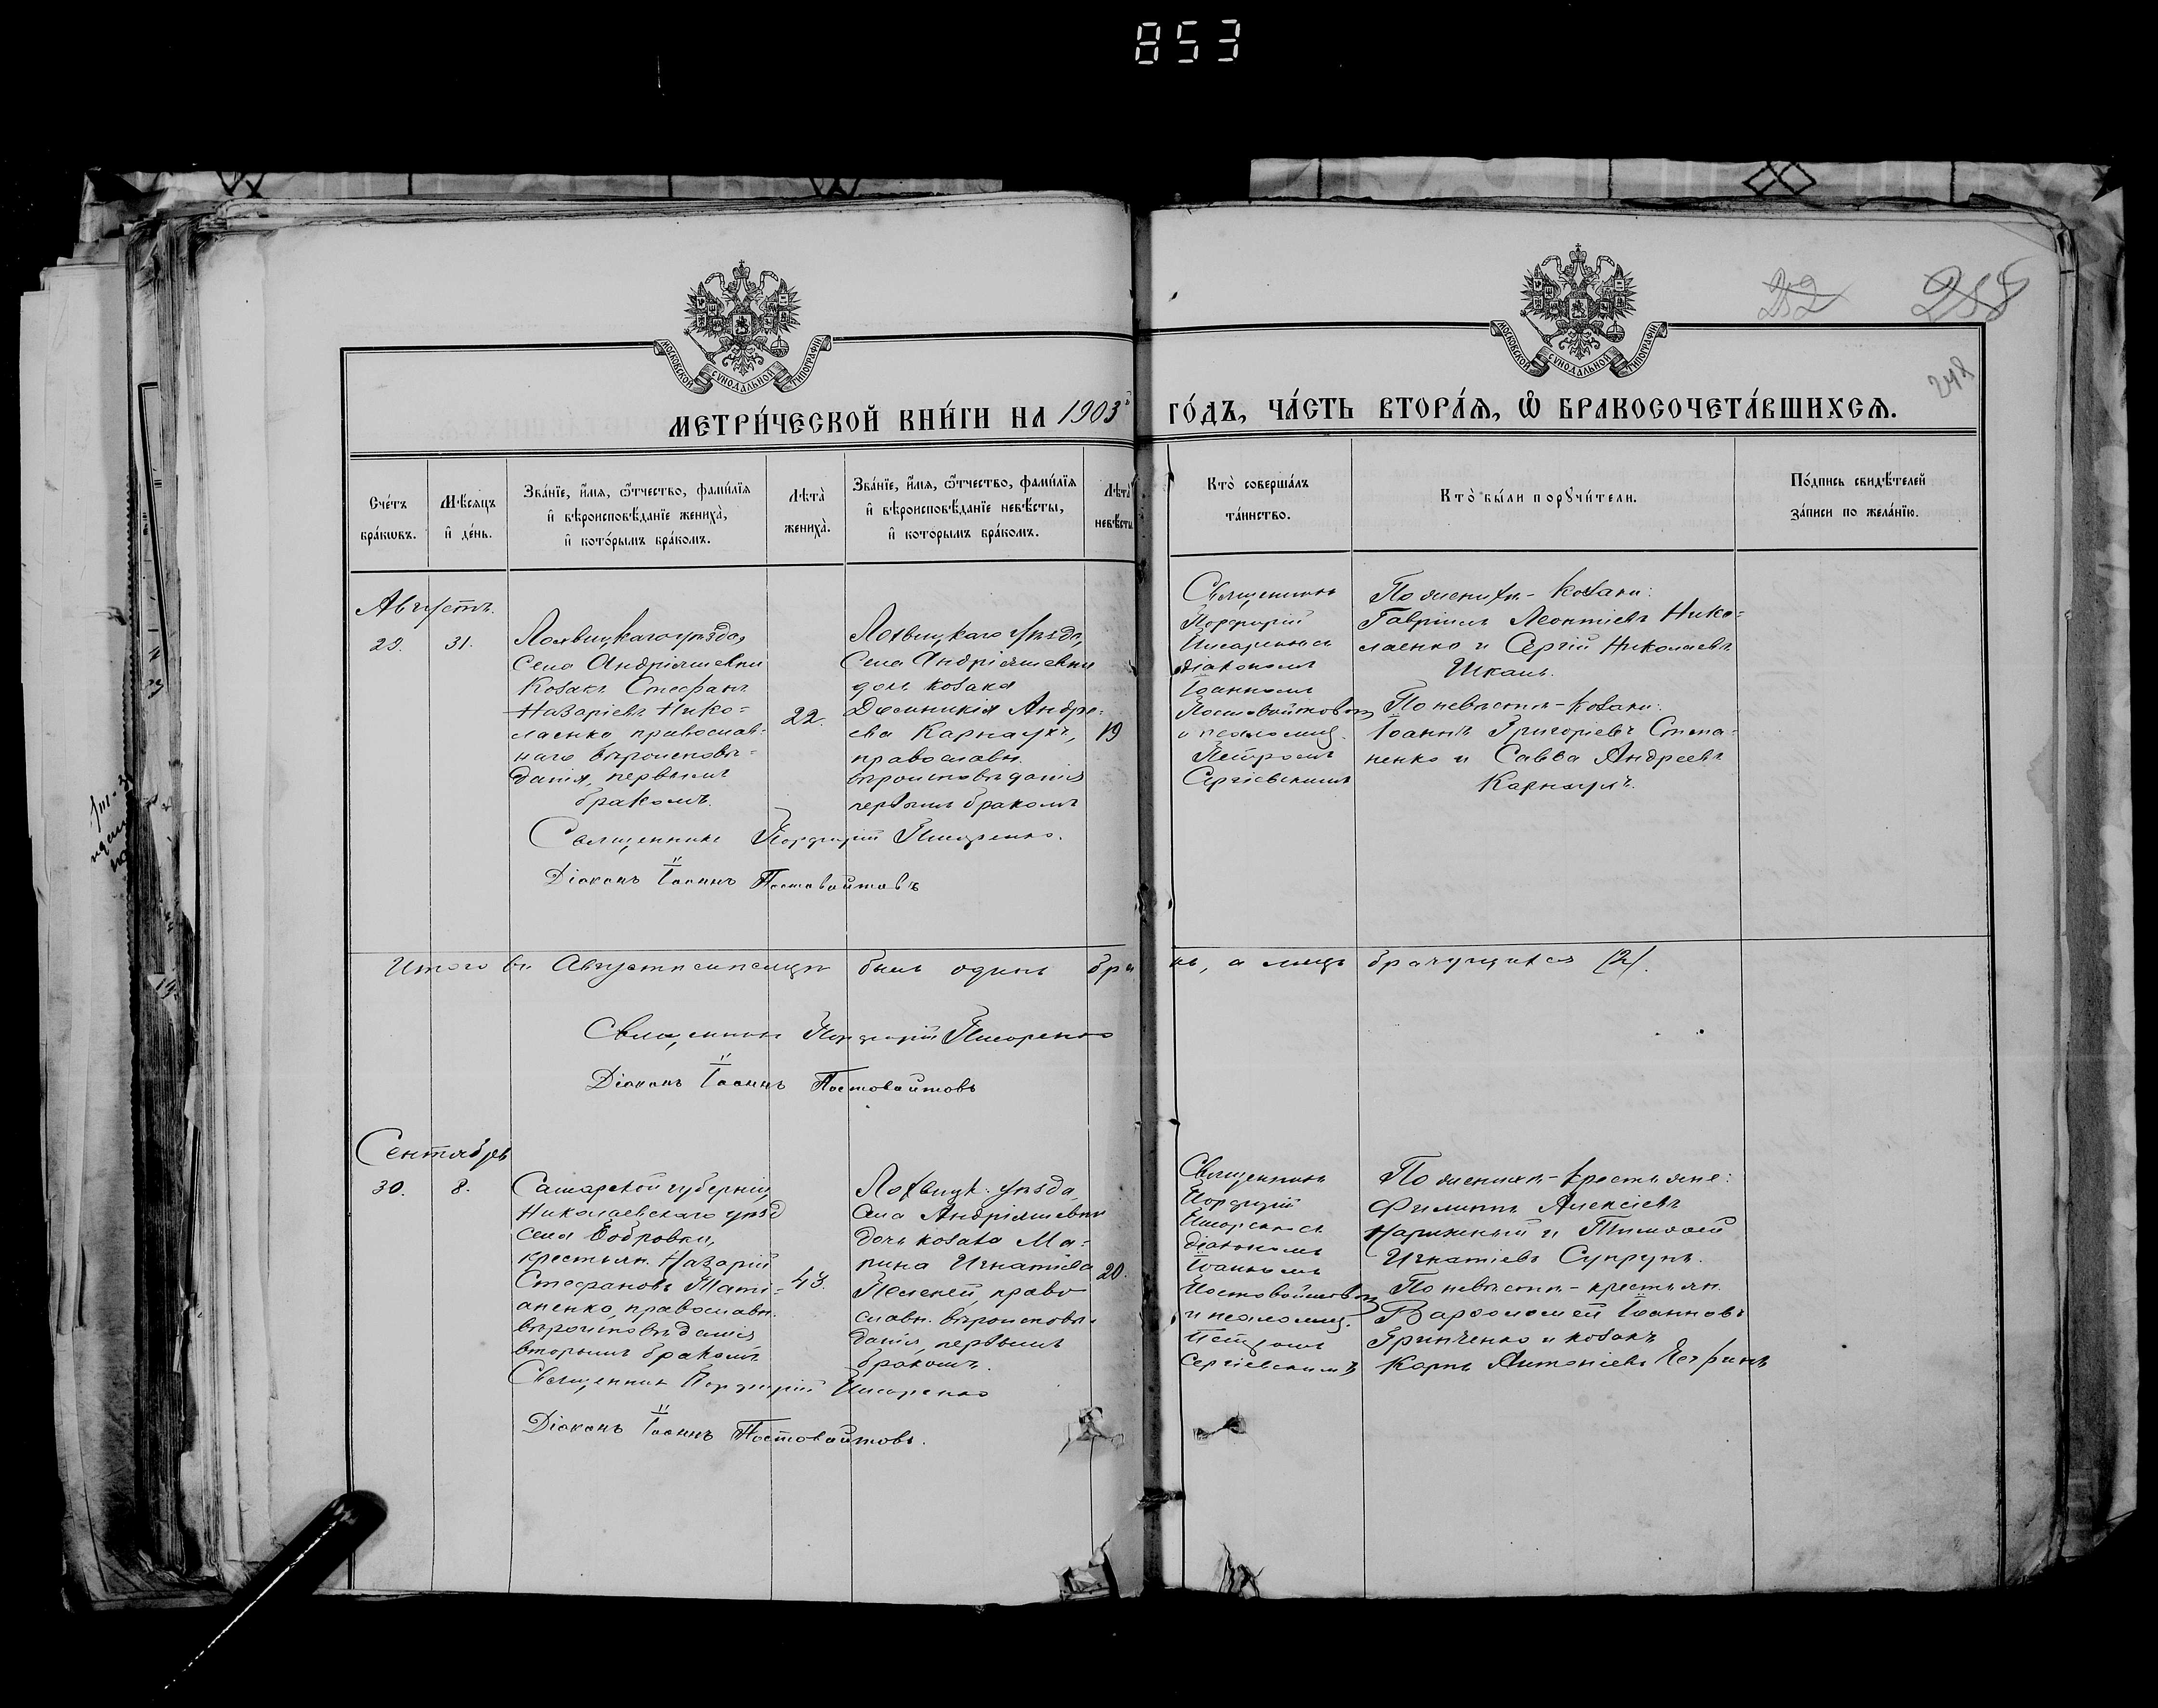 853
МОСКОВСКОЙ СУНОДАЛЬНОЙ ТИПОГРАФІИ
МОСКОВСКОЙ СУНОДАЛЬНОЙ ТИПОГРАФІИ
252
258
248
МЕТРИ́ЧЕСКОЙ КНИ́ГИ НА 1903й ГО́ДЪ, ЧА́СТЬ ВТОРА́Я, Ѡ БРАКОСОЧЕТА́ВШИХСЯ.
Сче́тъ бра́кѡвъ.
Мѣ́сяцъ и де́нь.
Зва́нїе, и́мя, ѻ҆́тчество, фами́лїя и вѣроисповѣ́данїе жениха̀, и кото́рымъ бра́комъ.
Лѣта̀ жениха̀.
Зва́нїе, и́мя, ѻ҆́тчество, фами́лїя и вѣроисповѣ́данїе невѣ́сты, и которымъ бра́комъ.
Лѣта̀ невѣ́сты
Кто̀ соверша́лъ та́инство.
Кто̀ бы́ли порꙋчи́тели.
По́дпись свидѣ́телей за́писи по жела́нїю.
Августъ.
29.
31.
Лохвицкаго уѣзда,
Села Андріяшевки
Козакъ Стефанъ
Назаріевъ Нико=
лаенко православ=
наго вѣроисповѣ=
данія, первымъ
бракомъ.
22.
Лохвицкаго уѣзда,
Села Андріяшевки
дочь козака
Домникія Андре=
ева Карнаухъ,
православн.
вѣроисповѣданія
первымъ бракомъ
19
Священникъ
Порфирій
Писаренко съ
діакономъ
Іоанномъ
Постовойтовым
и псаломщ.
Петромъ
Сергіевскимъ
По женихѣ - Козаки:
Гавріилъ Леонтіевъ Нико=
лаенко и Сергій Николаевъ
Шкаль.
По невѣстѣ - Козаки:
Іоаннъ Григоріевъ Степа=
ненко и Савва Андреевъ
Карнаухъ.
Священникъ Порфирій Писаренко.
Діаконъ Іоаннъ Постовойтовъ
Итого въ Августѣ мѣсяцѣ былъ одинъ бракъ, а лицъ брачущихся (2).
Священникъ Порфирій Писаренко
Діаконъ Іоаннъ Постовойтовъ
Сентябрь
30.
8.
Самарской губерніи,
Николаевскаго уѣзд
села Бобровки,
крестьян. Назарій
Стефановъ Тати=
аненко, православн.
вѣроисповѣданія,
вторымъ бракомъ
43.
Лохвицк. уѣзда,
Села Андріяшевки
дочь козака Ма=
рина Игнатіева
Пелепей, право
славн. вѣроисповѣ=
данія, первымъ
бракомъ.
20.
Священникъ
Порфирій
Писаренко съ
діакономъ
Іоанномъ
Постовойтовым
и псаломщ.
Петромъ
Сергіевскимъ
По женихѣ - крестьяне:
Филиппъ Алексіевъ
Нарижный и Тимоѳей
Игнатіевъ Супрунъ.
По невѣстѣ - крестьян.
Варѳоломей Іоанновъ
Гринченко и козакъ
Карпъ Антоніевъ
Священникъ Порфирій Писаренко
Діаконъ Іоаннъ Постовойтовъ.